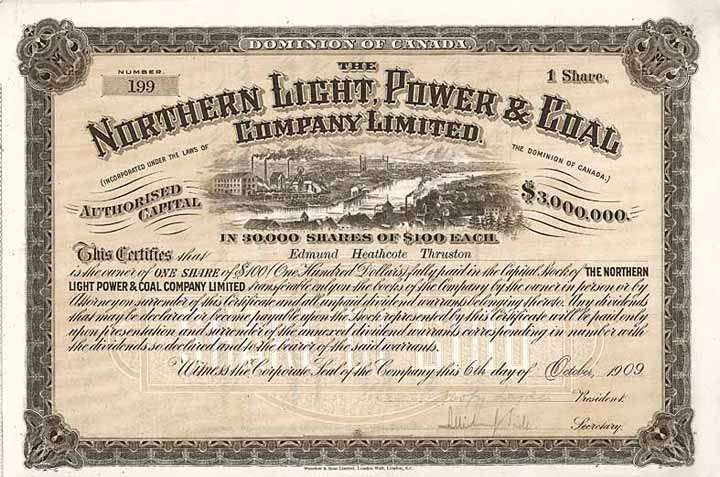 DOMINION OF CANADA
NUMBER.
199
1 Share.
THE
NORTHERN LIGHT, POWER & COAL
COMPANY LIMITED.
(INCORPORATED UNDER THE LAWS OF
THE DOMINION OF CANADA.)
AUTHORISED
CAPITAL
$3,000,000.
IN 30,000 SHARES OF $100 EACH.
This Certifies that Edmund Heathcote Thruston
is the owner of ONE SHARE of $100 (One Hundred Dollars) fully paid in the Capital Stock of THE NORTHERN
LIGHT POWER & COAL COMPANY LIMITED transferable only on the books of the Company by the owner in person or by
Attorney on surrender of this Certificate and all unpaid dividend warrants belonging thereto. Any dividends
that may be declared or become payable upon the Stock represented by this Certificate will be paid only
upon presentation and surrender of the annexed dividend warrants corresponding in number with
the dividends so declared and to the bearer of the said warrants.
Witness the Corporate Seal of the Company this 6th day of October, 1909
President.
Secretary.
Waterlow & Sons Limited, London Wall, London, E.C.